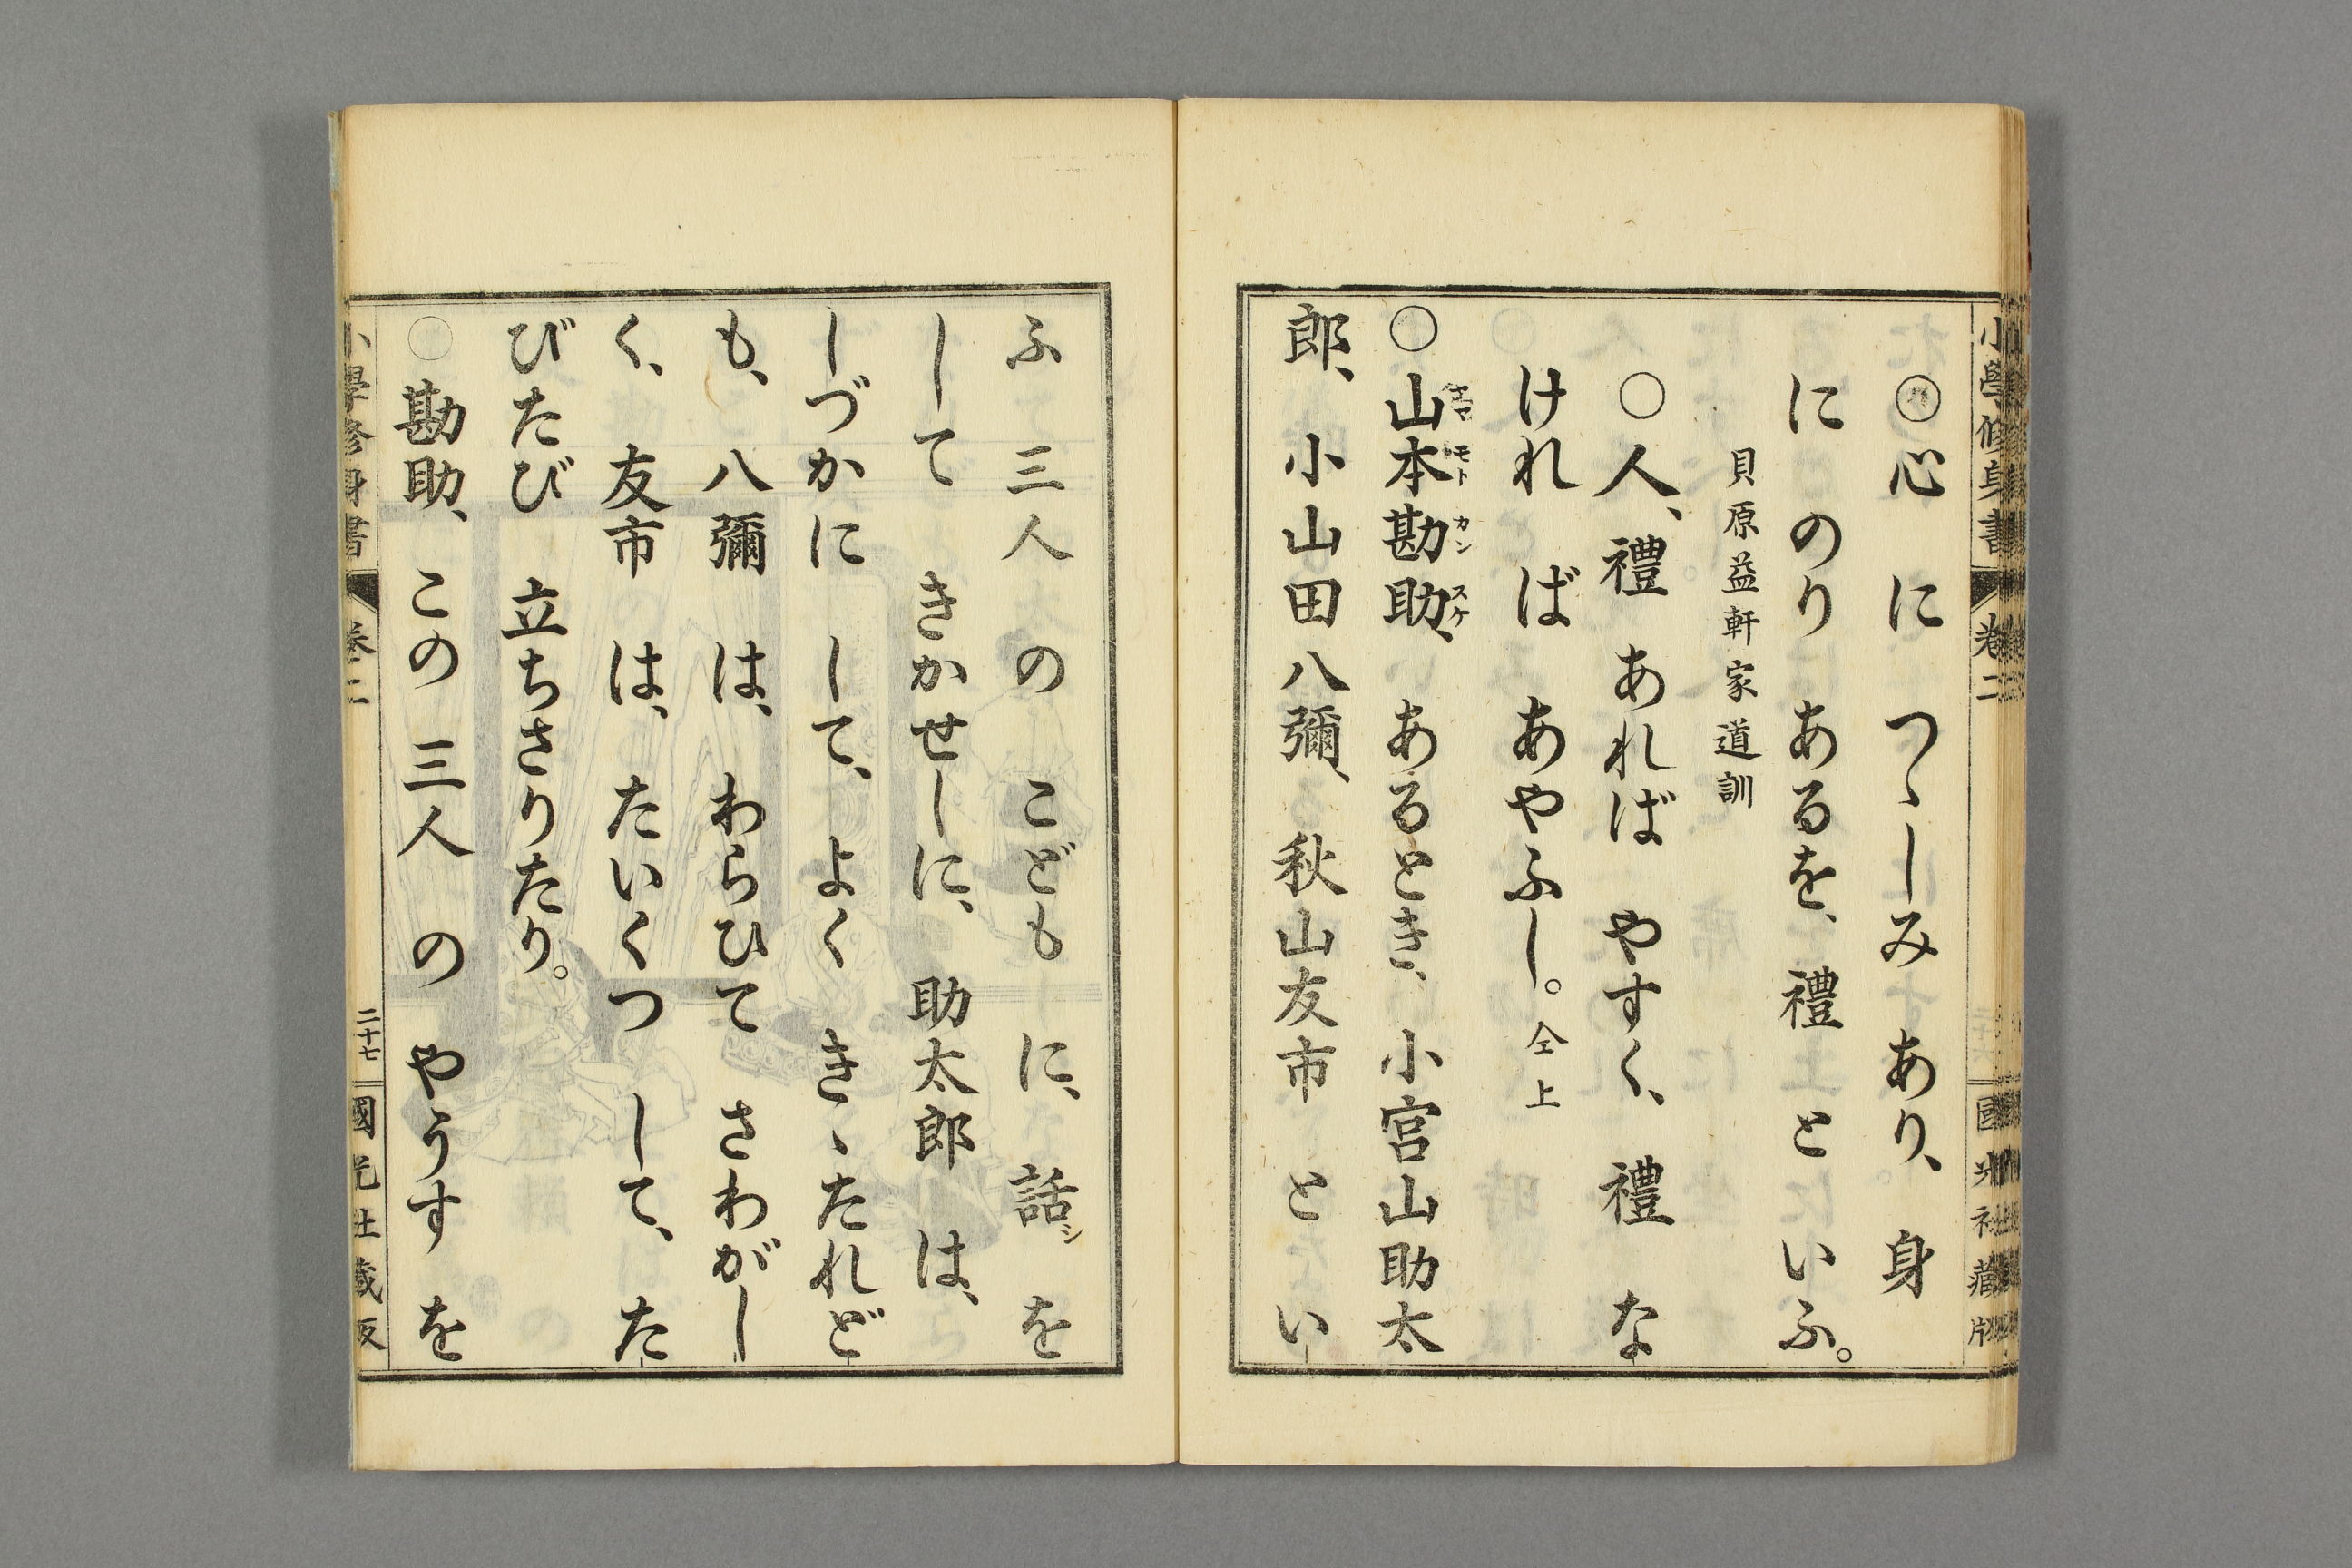 小學修身書 卷二 國光社藏版
○心 に つゝしみ あり、 身
に のり あるを、 禮 と いふ。
貝原益軒家道訓
○人、禮 あれば やすく、 禮 な
けれ ば あやふし。 仝上
○山本勘助、 あるとき、 小宮山助太
ヤマ モト カン スケ
郎、 小山田八彌、 秋山友市 と い
ふ 三人 の こども に、 話 を
シ
して きかせしに、 助太郎 は、
しづかに して、 よく きゝたれど
も、 八彌 は、 わらひて さわがし
く、 友市 は、 たいくつ して、 た
びたび 立ちさりたり。
○勘助、 この 三人 の やうす を
小學修身書 卷二 二十七 國光社藏版